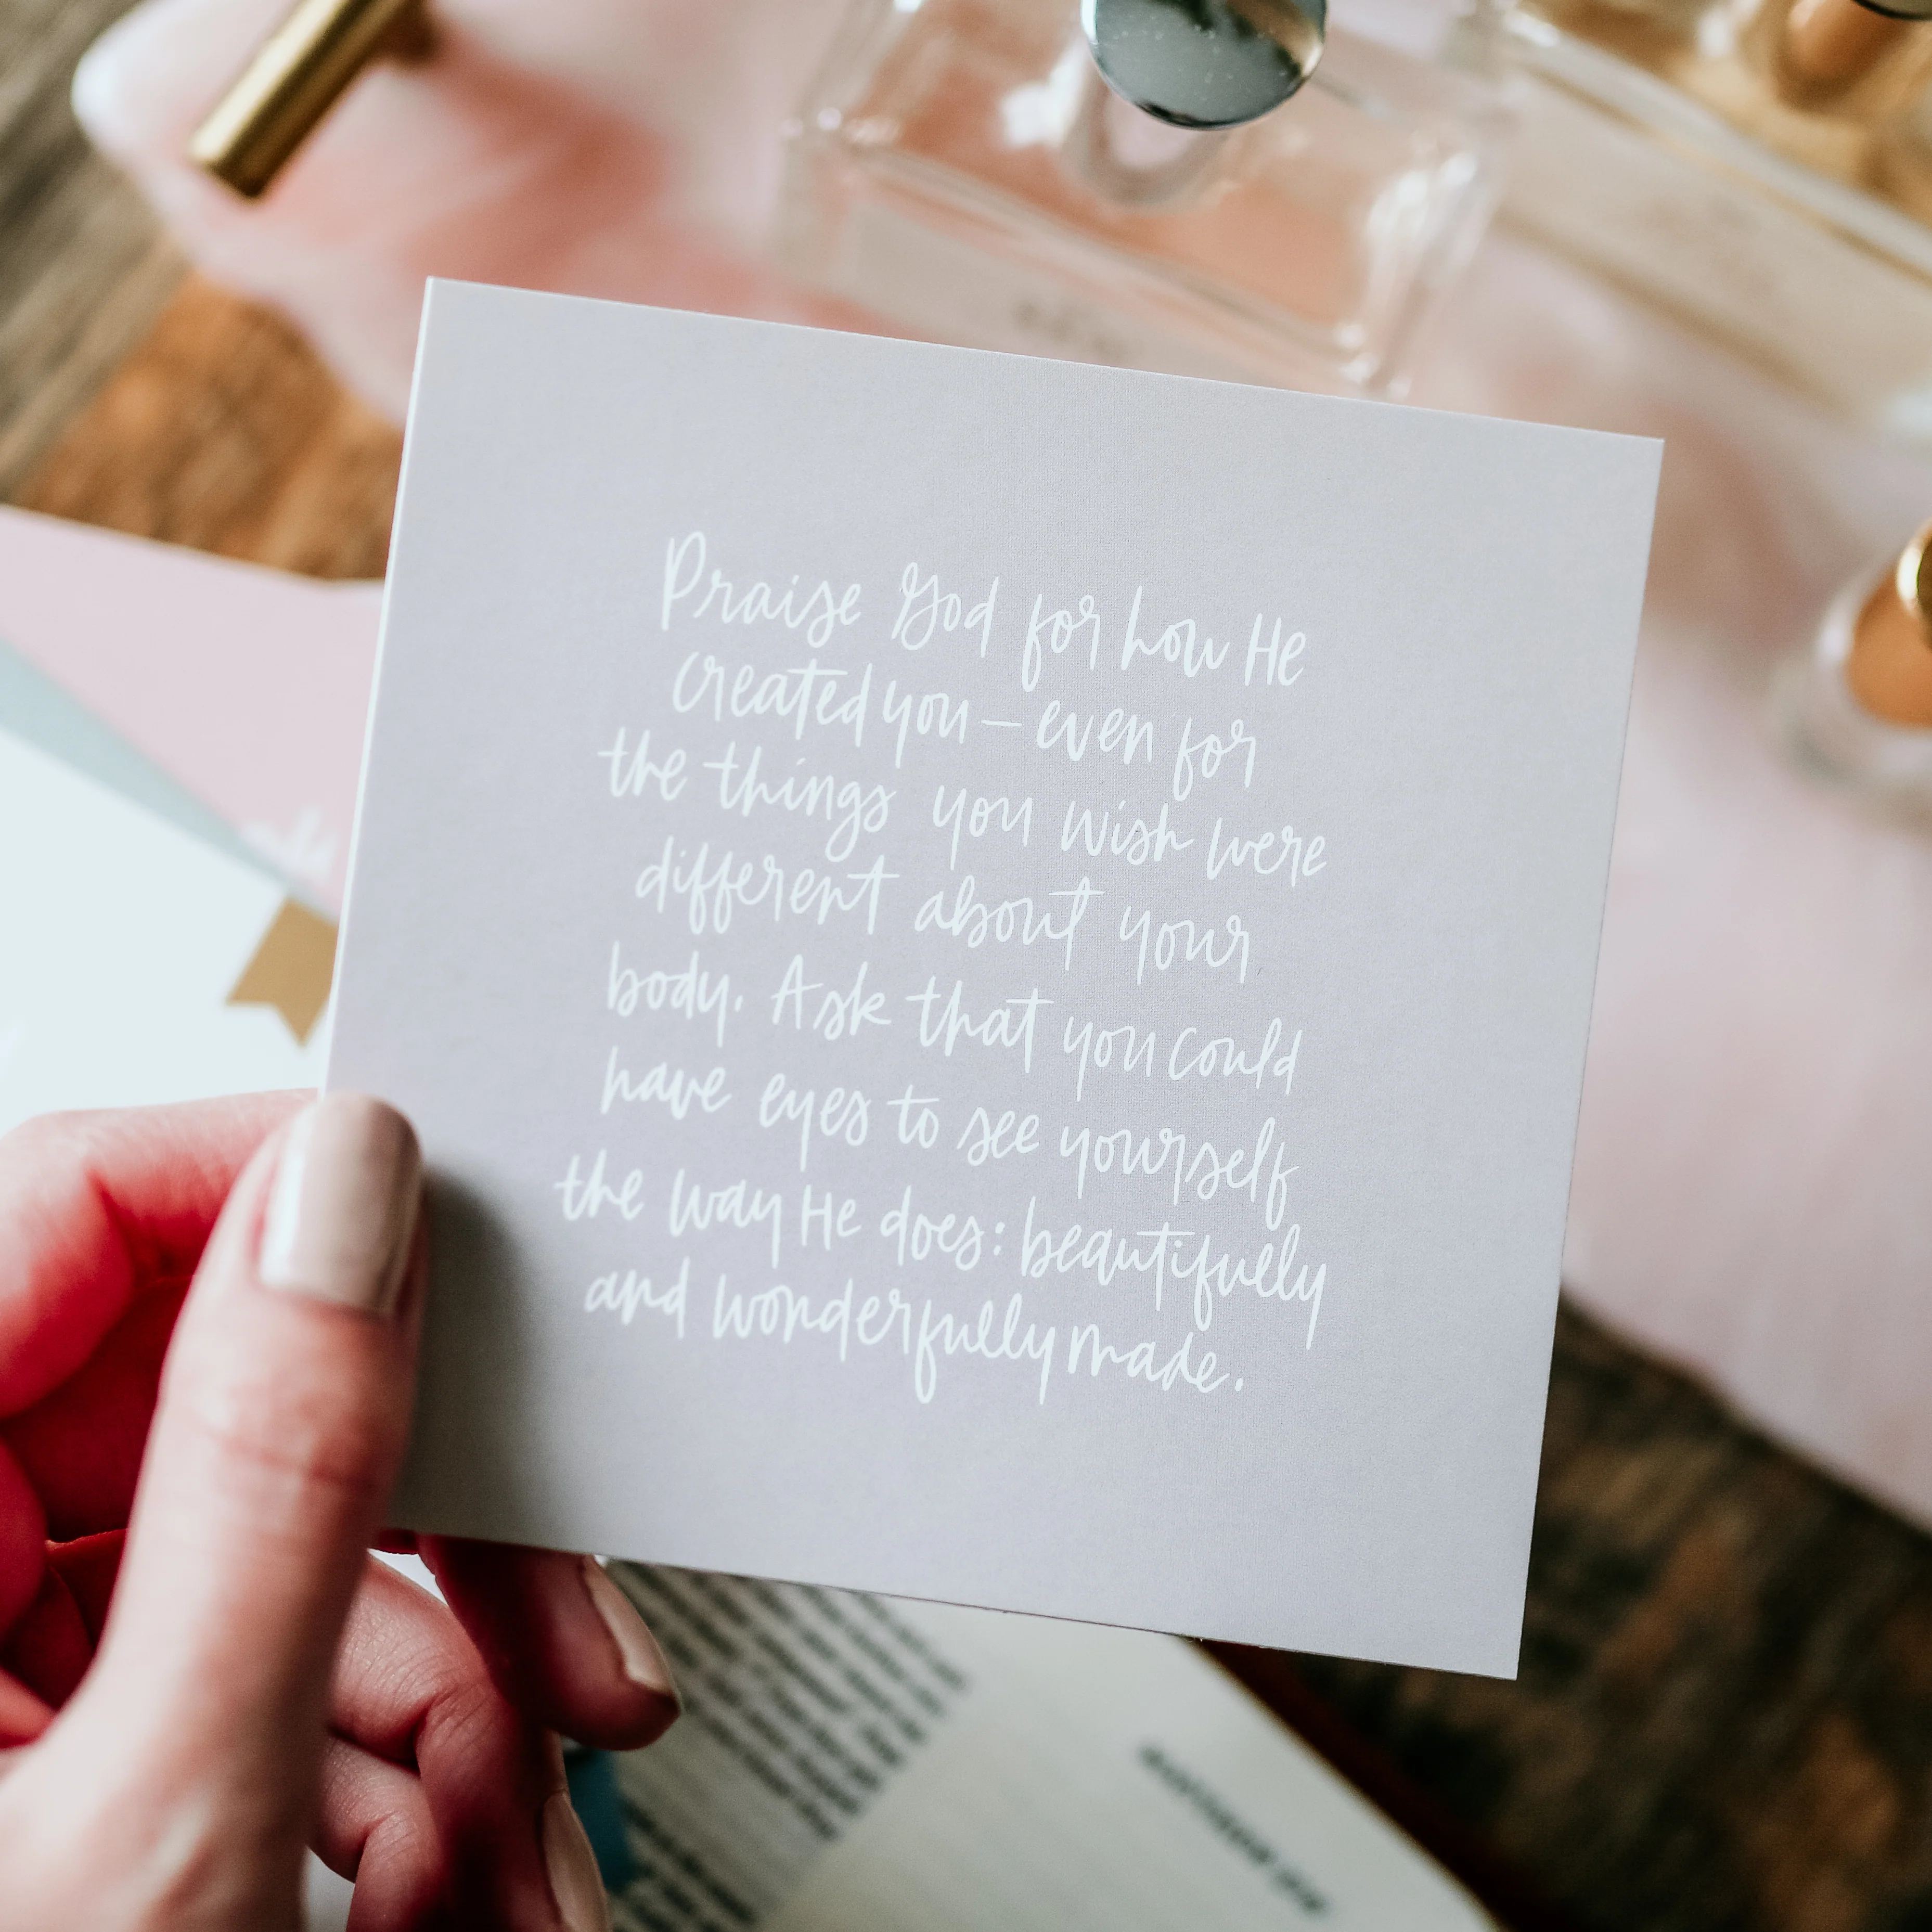 Praise God for how He
created you – even for
the things you wish were
different about your
body. Ask that you could
have eyes to see yourself
the way He does: beautifully
and wonderfully made.